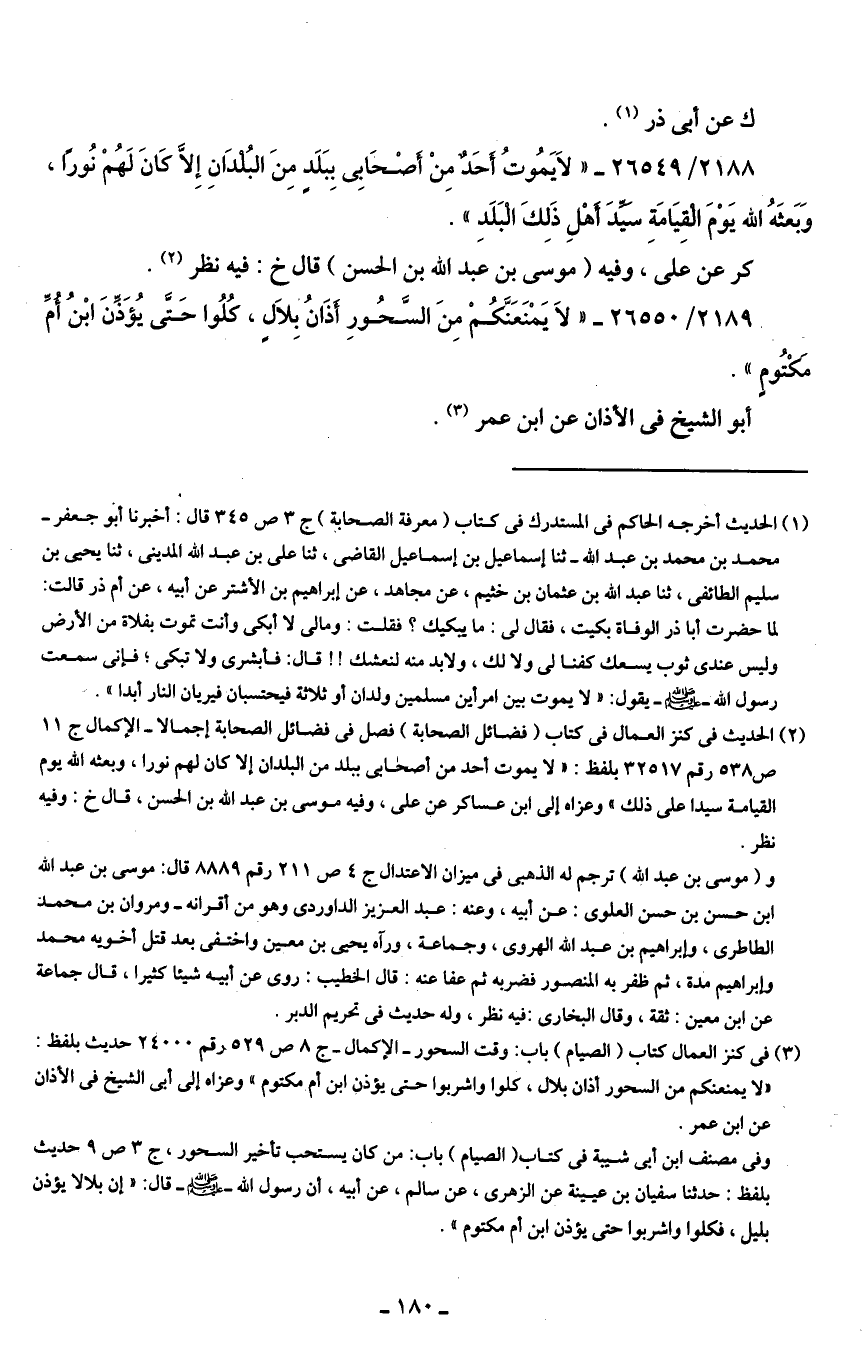 ك عن أبى ذر (١) .
٢٦٥٤٩/٢١٨٨ ـ « لاَيَمُوتُ أَحَدٌ مِنْ أَصْحَابِى بِبَلَدٍ مِنَ البُلْدَانِ إِلاَّ كَانَ لَهُمْ نُورًا ،
وَبَعَثَهُ الله يَوْمَ الْقِيَامَةِ سَيِّدَ أَهْلِ ذَلِكَ الْبَلَدِ » .
كر عن على ، وفيه ( موسى بن عبد الله بن الحسن ) قال خ : فيه نظر (٢) .
٢٦٥٥٠/٢١٨٩ ـ « لاَ يَمْنَعَنَّكُمْ مِنَ السَّحُورِ أَذَانُ بِلاَلٍ ، كُلُوا حَتَّى يُؤَذِّنَ ابْنُ أُمِّ
مَكْتُومٍ » .
أبو الشيخ فى الأذان عن ابن عمر (٣) .
(١) الحديث أخرجه الحاكم فى المستدرك فى كتاب ( معرفة الصحابة ) ج ٣ ص ٣٤٥ قال : أخبرنا أبو جعفر ـ
محمد بن محمد بن عبد الله ـ ثنا إسماعيل بن إسماعيل القاضى ، ثنا على بن عبد الله المدينى ، ثنا يحيى بن
سليم الطائفى ، ثنا عبد الله بن عثمان بن خثيم ، عن مجاهد ، عن إبراهيم بن الأشتر عن أبيه ، عن أم ذر قالت:
لما حضرت أبا ذر الوفاة بكيت ، فقال لى : ما يبكيك ؟ فقلت : ومالى لا أبكى وأنت تموت بفلاة من الأرض
وليس عندى ثوب يسعك كفنا لى ولا لك ، ولابد منه لنعشك !! قال: فأبشرى ولا تبكى ؛ فإنى سمعت
رسول الله ـ ﷺ ـ يقول: « لا يموت بين امرأين مسلمين ولدان أو ثلاثة فيحتسبان فيريان النار أبدا » .
(٢) الحديث فى كنز العمال فى كتاب ( فضائل الصحابة ) فصل فى فضائل الصحابة إجمالا ـ الإكمال ج ١١
ص٥٣٨ رقم ٣٢٥١٧ بلفظ : « لا يموت أحد من أصحابى ببلد من البلدان إلا كان لهم نورا ، وبعثه الله يوم
القيامة سيدا على ذلك » وعزاه إلى ابن عساكر عن على ، وفيه موسى بن عبد الله بن الحسن ، قال خ : وفيه
نظر .
و ( موسى بن عبد الله ) ترجم له الذهبى فى ميزان الاعتدال ج ٤ ص ٢١١ رقم ٨٨٨٩ قال: موسى بن عبد الله
ابن حسن بن حسن العلوى : عن أبيه ، وعنه : عبد العزيز الداوردى وهو من أقرانه ـ ومروان بن محمد
الطاطرى ، وإبراهيم بن عبد الله الهروى ، وجماعة ، ورآه يحيى بن معين واختفى بعد قتل أخويه محمد
وإبراهيم مدة ، ثم ظفر به المنصور فضربه ثم عفا عنه : قال الخطيب : روى عن أبيه شيئا كثيرا ، قال جماعة
عن ابن معين : ثقة ، وقال البخارى :فيه نظر ، وله حديث فى تحريم الدبر .
(٣) فى كنز العمال كتاب ( الصيام ) باب: وقت السحور ـ الإكمال ـ ج ٨ ص ٥٢٩ رقم ٢٤٠٠٠ حديث بلفظ :
«لا يمنعنكم من السحور أذان بلال ، كلوا واشربوا حتى يؤذن ابن أم مكتوم » وعزاه إلى أبى الشيخ فى الأذان
عن ابن عمر .
وفى مصنف ابن أبى شيبة فى كتاب( الصيام ) باب: من كان يستحب تأخير السحور ، ج ٣ ص ٩ حديث
بلفظ : حدثنا سفيان بن عيينة عن الزهرى ، عن سالم ، عن أبيه ، أن رسول الله ـ ﷺ ـ قال: « إن بلالا يؤذن
بليل ، فكلوا واشربوا حتى يؤذن ابن أم مكتوم » .
ـ ١٨٠ ـ